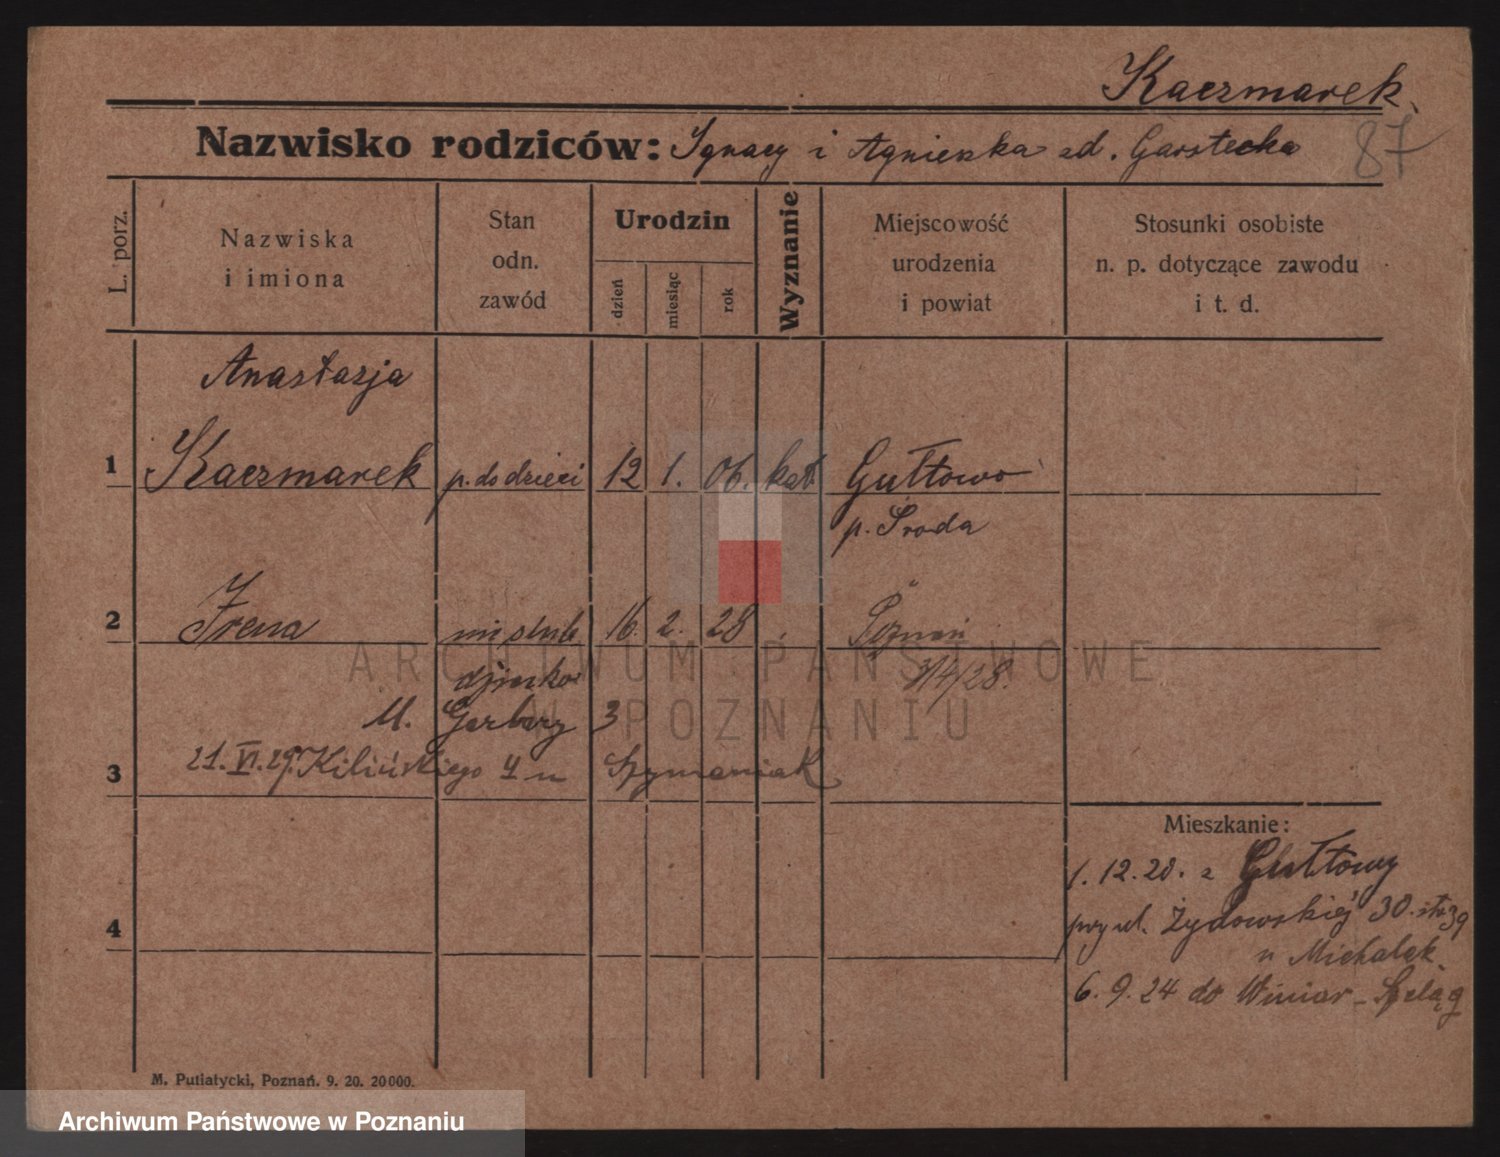 Kaczmarek
Nazwisko rodziców: Ignacy i Agnieszka zd. Garstecka 87
L. porz.
Nazwiska
i imiona
Stan
odn.
zawód
Urodzin
dzień
miesiąc
rok
Wyznanie
Miejscowość
urodzenia
i powiat
Stosunki osobiste
n. p. dotyczące zawodu
i t. d.
Anastazja
1 Kaczmarek p. do dzieci 12 1. 06. kat Gułtowo
p. Środa
2 Irena nieślub 16. 2. 28 Poznań
dziecko 3/4/28.
Ul. Garbary 3
21.VI.29. Kilińskiego 4 u Szymaniak
3
Mieszkanie:
1.12.20. z Gułtowy
przy ul. Żydowskiej 30. 39
u Michalak
6.9.24 do Winiar - Szeląg
4
M. Putiatycki, Poznań. 9. 20. 20000.
ARCHIWUM PAŃSTWOWE
W POZNANIU
Archiwum Państwowe w Poznaniu